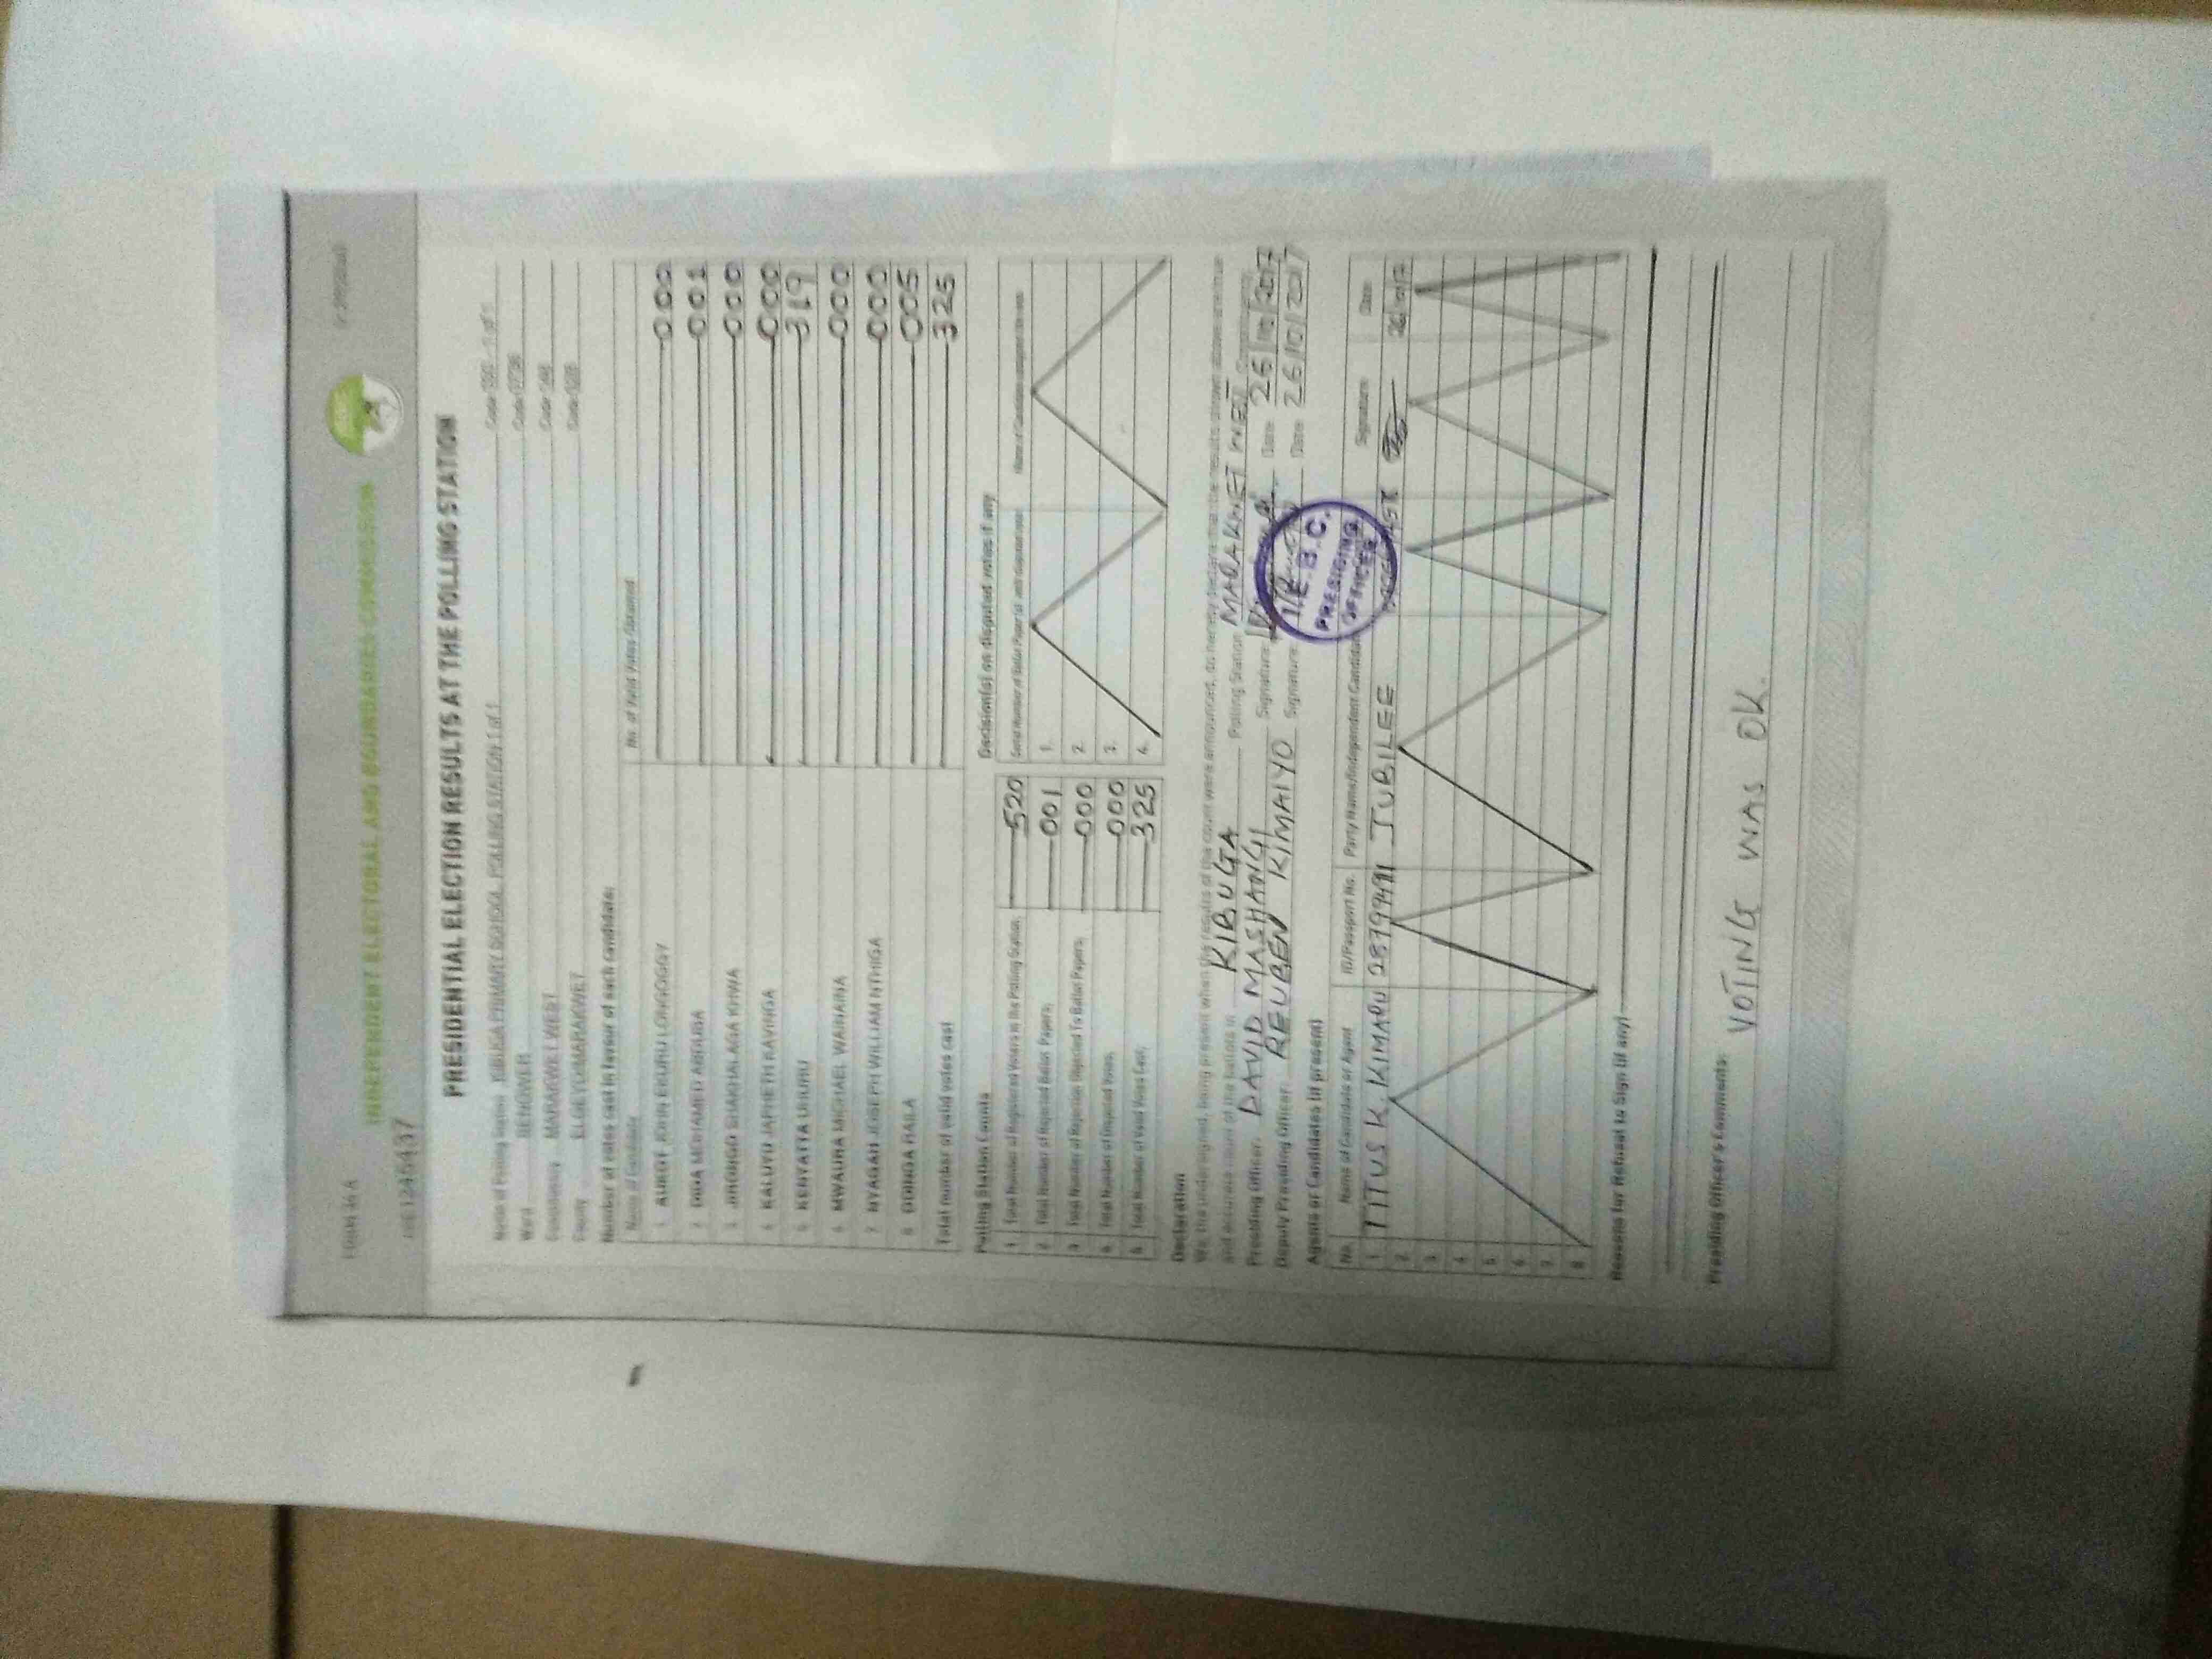 FORM 34 A
INDEPENDENT ELECTORAL AND BOUNDARIES COMMISSION
PRESIDENTIAL ELECTION RESULTS AT THE POLLING STATION
Name of Polling Station KIBUGA PRIMARY SCHOOL POLLING STATION 1 of 1 Code 1 of 1
Ward Code
Constituency MARAKWET WEST Code
County ELGEYO/MARAKWET Code
Number of votes cast in favour of each candidate:
Name of Candidate No. of Valid Votes Obtained
1 AUKOT JOHN EKURU LONGOGGY 000
2 DIDA MOHAMED ABDUBA 001
3 JIRONGO SHAKHALAGA KHWA 000
4 KALUYU JAPHETH KAVINGA 000
5 KENYATTA UHURU 319
6 MWAURA MICHAEL WAINAINA 000
7 NYAGAH JOSEPH WILLIAM NTHIGA 000
8 ODINGA RAILA 005
Total number of valid votes cast 325
Polling Station Counts
1. Total Number of Registered Voters in the Polling Station; 520
2. Total Number of Rejected Ballot Papers; 001
3. Total Number of Rejection Objected To Ballot Papers; 000
4. Total Number of Disputed Votes; 000
5. Total Number of Valid Votes Cast; 325
Decision(s) on disputed votes if any
1.
2.
3.
4.
Declaration
We, the undersigned, being present when the results of the count were announced, do hereby declare that the results shown above are true
and accurate count of the ballots in KIBUGA Polling Station MARAKWET WEST Constituency
Presiding Officer DAVID MASHANGI Signature Date 26/10/2017
Deputy Presiding Officer REUBEN KIMAIYO Signature Date 26/10/2017
I.E.B.C.
PRESIDING
OFFICER
Agents or Candidates (if present)
No. Name of Candidate or Agent ID/Passport No. Party Name/Independent Candidate Signature Date
1 TITUS K. KIMARU JUBILEE 26/10/17
2
3
4
5
6
7
8
Reasons for Refusal to Sign (if any)
Presiding Officer's Comments:
VOTING WAS OK.